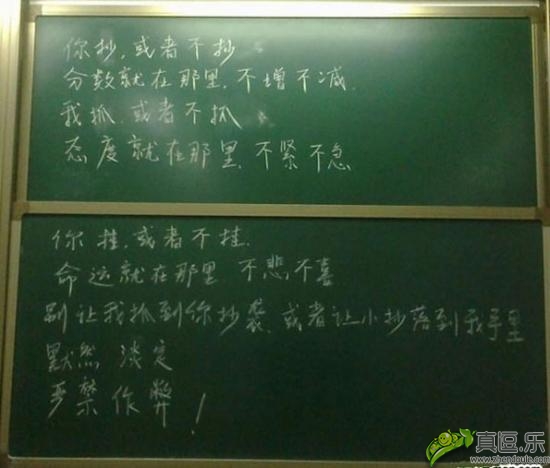 你抄,或者不抄
分数就在那里,不增不减.
我抓.或者不抓
态度就在那里.不紧不急
你挂,或者不挂.
命运就在那里 不悲不喜
别让我抓到你抄袭、或者让小抄落到我手里
默然 淡定
严禁作弊!
真逗.乐
www.zhendoule.com